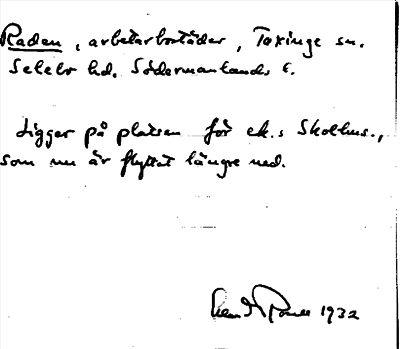 Raden, arbetarbostäder, Taxinge sn.
Selebo hd. Södermanlands l.
Ligger på platsen för ek.s Skolhus.,
som nu är flyttat längre ned.
1932